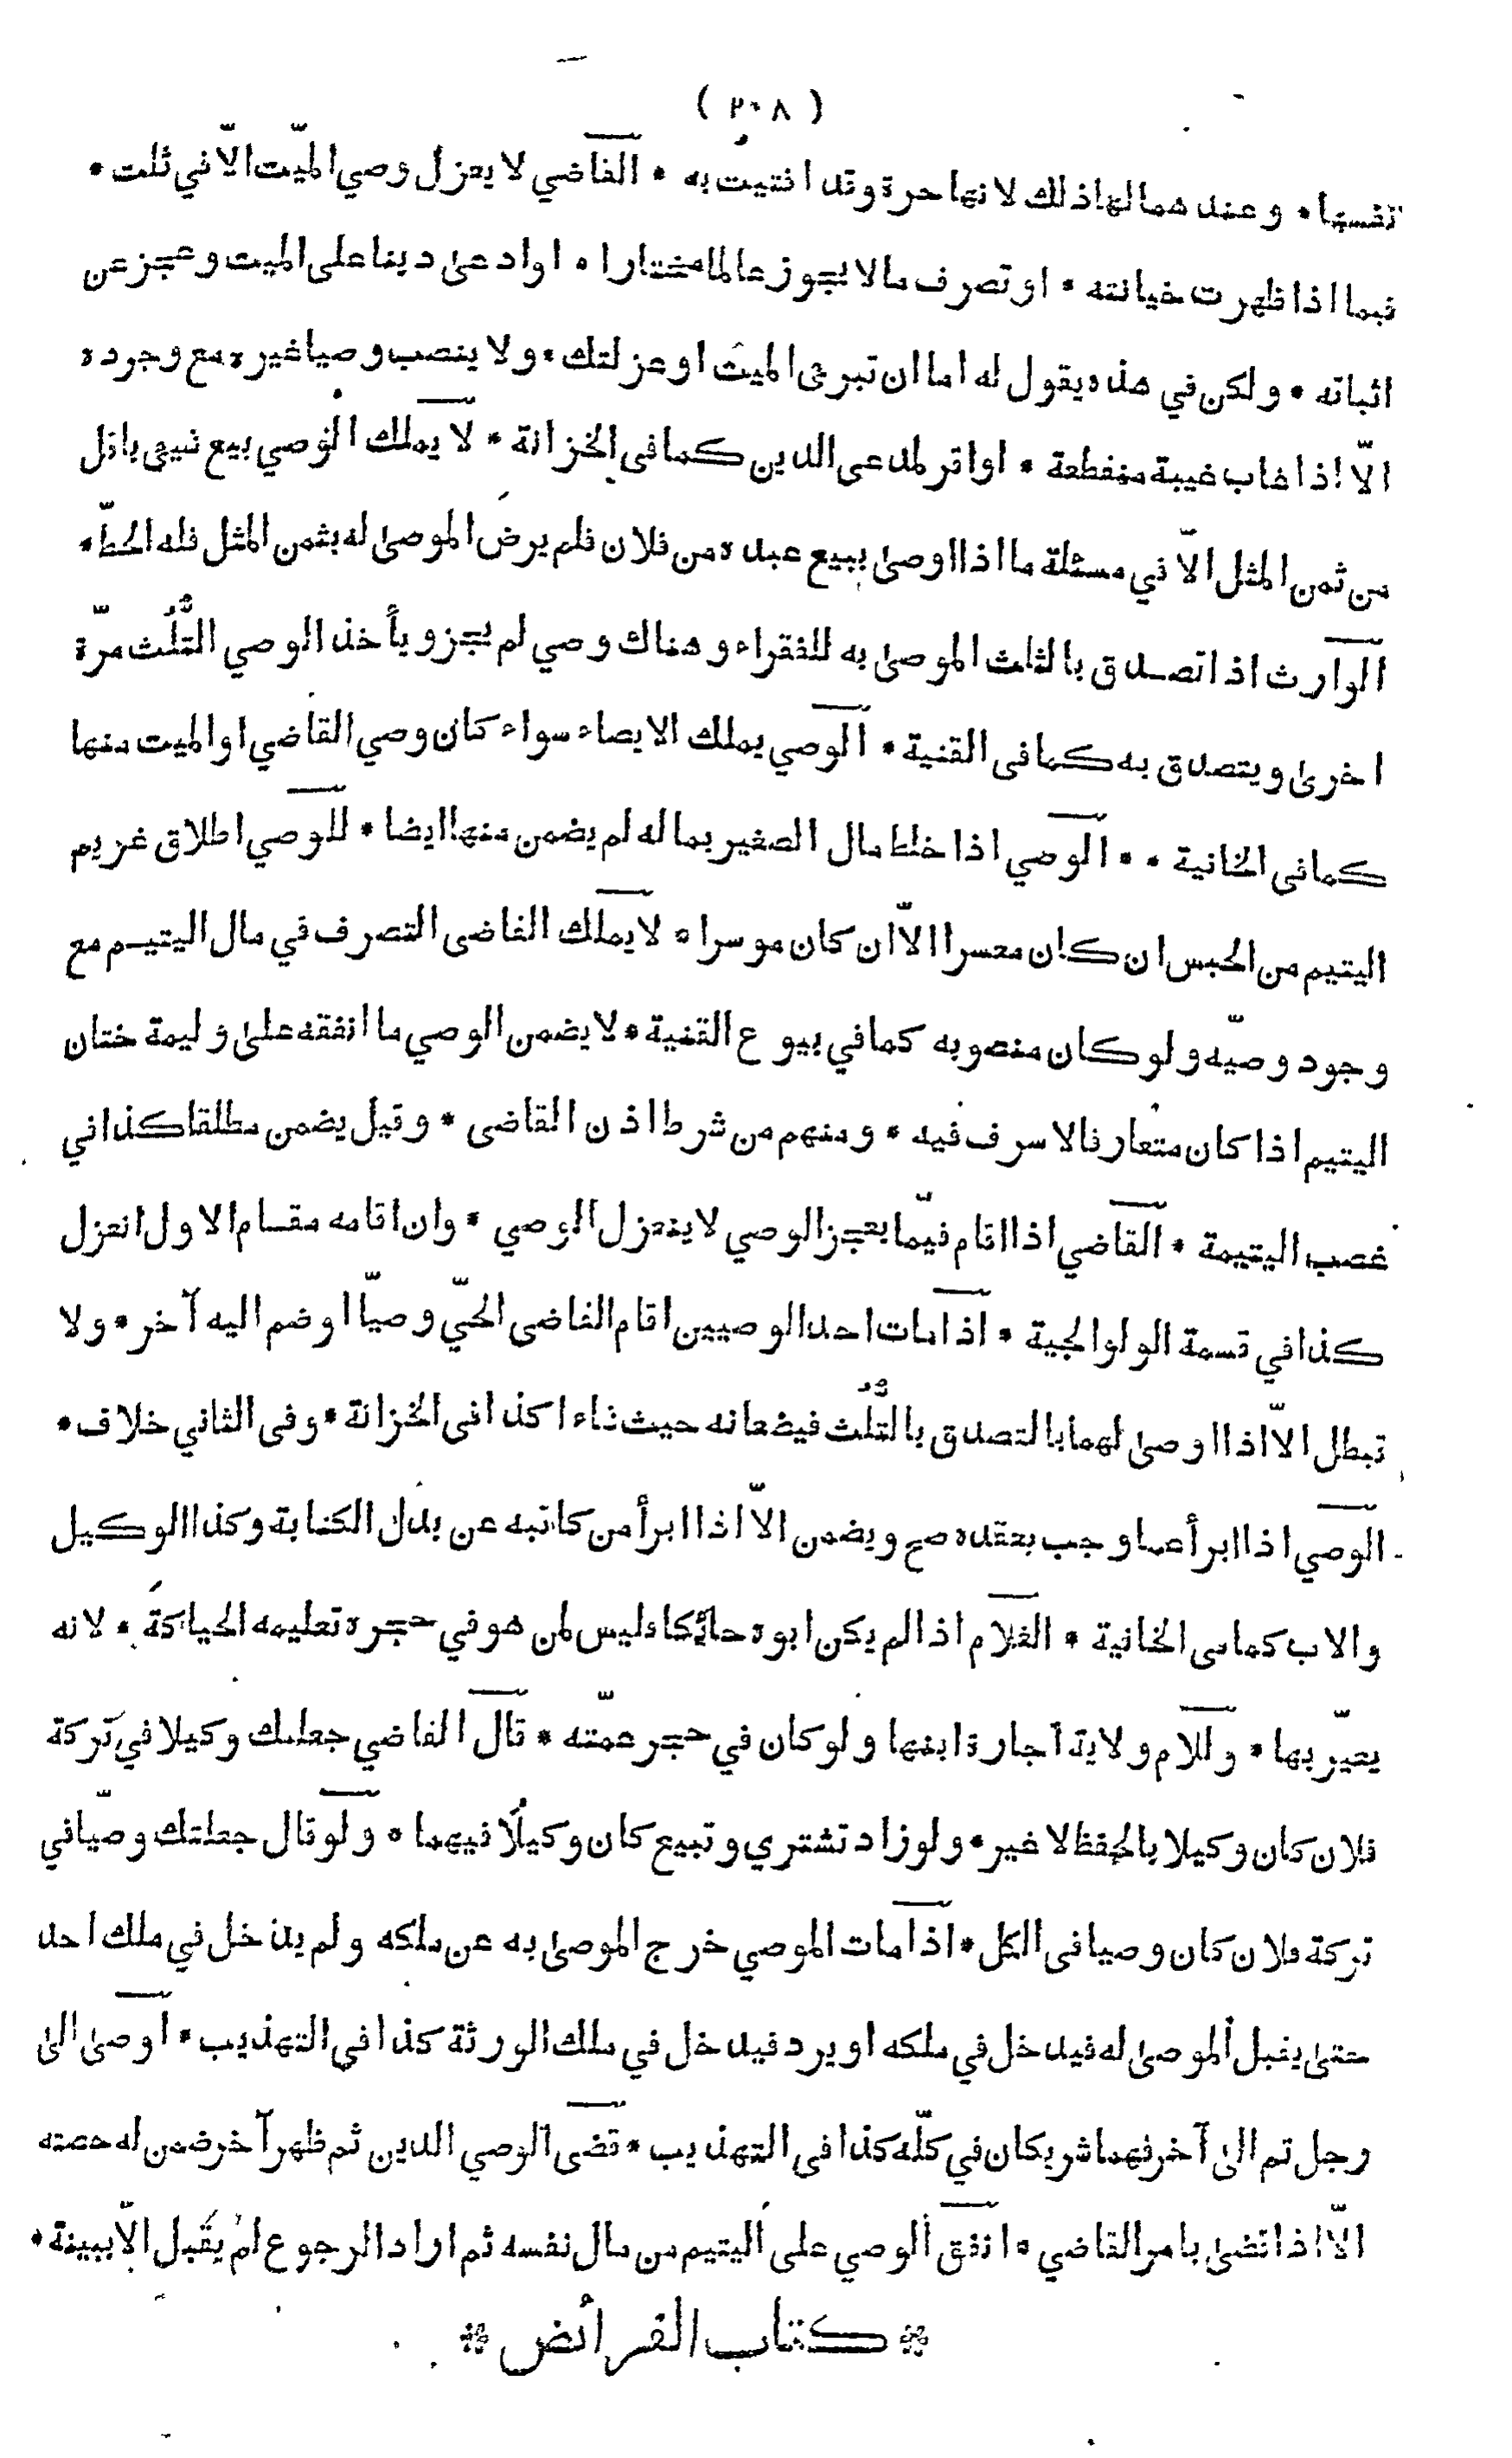 ( ٢٠٨ )
نفسها * وعند هما لها ذلك لانها حرة وقد افتيت به * القاضي لا يعزل وصي الميّت الاّ في ثلث *
فيما اذا ظهرت خيانته * او تصرف مالا يجوز عالما مختارا * او ادعى دينا على الميت وعجز عن
اثباته * ولكن في هذه يقول له اما ان تبرئ الميت او عزلتك * ولا ينصب وصيا غيره مع وجوده
الاّ اذا غاب غيبة منقطعة * او اقر لمدعى الدين كما فى الخزانة * لا يملك الوصي بيع شيئ باقل
من ثمن المثل الاّ في مسئلة ما اذا اوصى ببيع عبده من فلان فلم يرض الموصى له بثمن المثل فله الحطّ *
الوارث اذا تصدق بالثلث الموصى به للفقراء وهناك وصي لم يجز ويأخذ الوصي الثّلث مرّة
اخرى ويتصدق به كما فى القنية * الوصي يملك الايصاء سواء كان وصي القاضي او الميت منها
كما فى الخانية * * الوصي اذا خلط مال الصغير بماله لم يضمن منها ايضا * للوصي اطلاق غريم
اليتيم من الحبس ان كان معسرا الاّ ان كان موسرا * لا يملك القاضى التصرف في مال اليتيم مع
وجود وصيّه ولو كان منصوبه كما في بيوع القنية * لا يضمن الوصي ما انفقه على وليمة ختان
اليتيم اذا كان متعارفا لا سرف فيه * ومنهم من شرط اذن القاضى * وقيل يضمن مطلقا كذا في
غصب اليتيمة * القاضي اذا اقام قيّما بعجز الوصي لا ينعزل الوصي * وان اقامه مقام الاول انعزل
كذا في قسمة الولوالجية * اذا مات احد الوصيين اقام القاضى الحيّ وصيّا او ضم اليه آخر * ولا
تبطل الاّ اذا اوصى لهما بالتصدق بالثّلث فيضعانه حيث شاءا كذا فى الخزانة * وفى الثاني خلاف *
الوصي اذا ابرأ عما وجب بعقده صح ويضمن الاّ اذا ابرأ من كاتبه عن بدل الكتابة وكذا الوكيل
والاب كما فى الخانية * الغلام اذا لم يكن ابوه حائكا فليس لمن هو في حجره تعليمه الحياكة * لانه
يعيّر بها * وللام ولاية آجارة ابنها ولو كان في حجر عمّته * قال القاضي جعلتك وكيلا في تركة
فلان كان وكيلا بالحفظ لا غير * ولو زاد تشتري وتبيع كان وكيلا فيهما * ولو قال جعلتك وصيّا في
تركة فلان كان وصيا فى الكل * اذا مات الموصي خرج الموصى به عن ملكه ولم يدخل في ملك احد
حتى يقبل الموصى له فيدخل في ملكه او يرد فيدخل في ملك الورثة كذا في التهذيب * اوصى الى
رجل ثم الى آخر فهما شريكان في كلّه كذا فى التهذيب * قضى الوصي الدين ثم ظهر آخر ضمن له حصته
الاّ اذا قضى بامر القاضي * انفق الوصي على اليتيم من مال نفسه ثم اراد الرجوع لم يقبل الاّ ببينة *
* كتاب الفرائض *